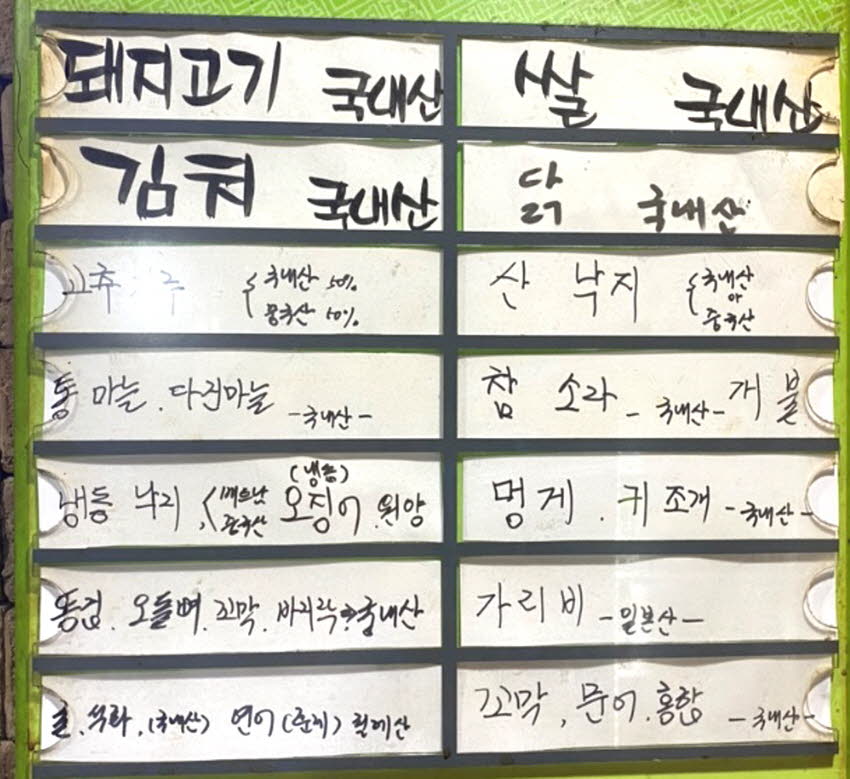 돼지고기 국내산
쌀 국내산
김치 국내산
닭 국내산
고추 국내산 50%
중국산 50%
산 낙지 국내산
중국산
통마늘. 다진마늘 -국내산-
참 소라 - 국내산 - 개불
냉동 낙지 베트남
중국산
(냉동)
오징어 원양
멍게. 귀조개 -국내산-
똥집. 오돌뼈. 꼬막. 바지락 국내산
가리비 -일본산-
굴. 석화. (국내산) 연어 (훈제) 칠레산
꼬막, 문어. 홍합 -국내산-